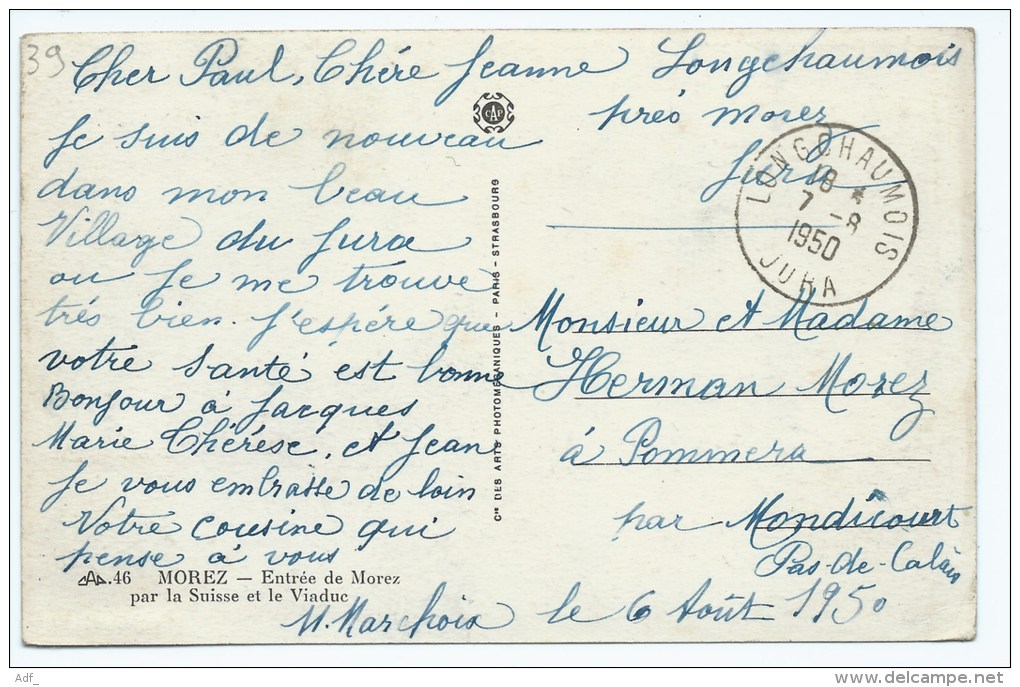 39
Cher Paul, Chére Jeanne
Je suis de nouveau
dans mon beau
Village du Jura
ou Je me trouve
trés bien. J'espére que
votre Santé est bonne
Bonjour á Jacques
Marie Chérése, et Jean
Je vous embrasse de loin
Votre cousine qui
pense á vous
.46 MOREZ — Entrée de Morez
par la Suisse et le Viaduc
CAP
Cie DES ARTS PHOTOMÉCANIQUES - PARIS - STRASBOURG
Longchaumois
prés Morez
Jura
LONGCHAUMOIS
18 *
7 -8
1950
JURA
Monsieur et Madame
Herman Morez
á Pommera
par Mondicourt
Pas-de-Calais
le 6 Août 1950
Adf_
delcampe.net